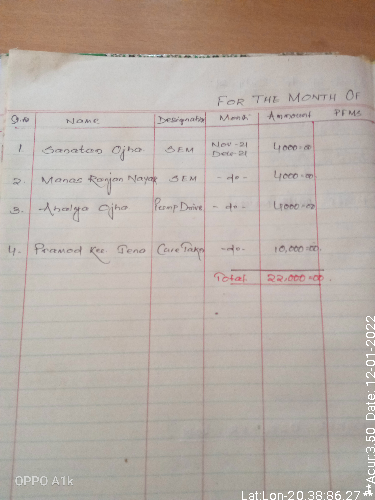 FOR THE MONTH OF
Sr.No Name Designation Month Ammount PFMS
1. Sanatan Ojha SEM Nov-21 Dece-21 4000.00
2. Manas Ranjan Nayak SEM -do- 4000.00
3. Ahalya Ojha Pump Drive -do- 4000.00
4. Pramod Kr. Jena Care Taker -do- 10,000.00
Total 22,000.00
OPPO A1k
Lat:Lon-20.38:86.27**
**Acur:3.50 Date: 12-01-2022